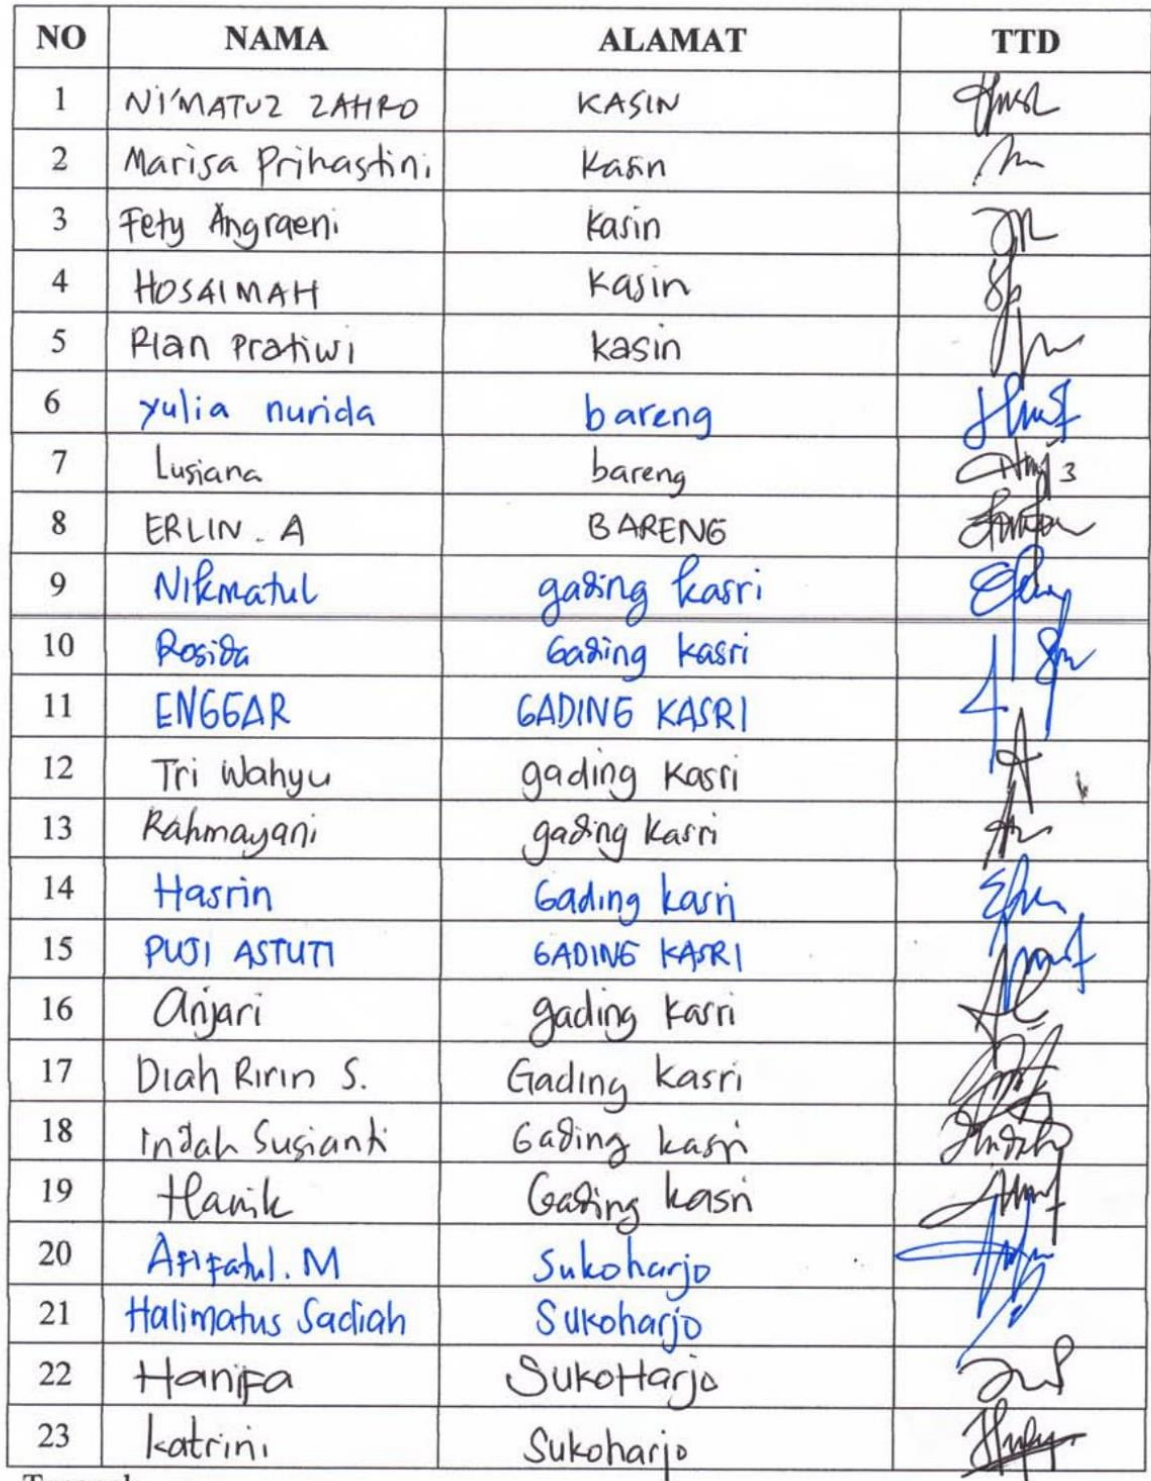 NO NAMA ALAMAT TTD
1 NI'MATUZ ZAHRO KASIN
2 Marisa Prihastini Kasin
3 Fety Angraeni Kasin
4 HOSAIMAH Kasin
5 Rian Pratiwi kasin
6 yulia nurida bareng
7 Lusiana bareng
8 ERLIN. A BARENG
9 Nikmatul gading kasri
10 Rosida Gading kasri
11 ENGGAR GADING KASRI
12 Tri Wahyu gading Kasri
13 Rahmayani gading kasri
14 Hasrin Gading kasri
15 PUJI ASTUTI GADING KASRI
16 Anjari gading kasri
17 Diah Ririn S. Gading kasri
18 Indah Susianti Gading kasri
19 Hanik Gading kasri
20 Afifatul. M Sukoharjo
21 Halimatus Sadiah Sukoharjo
22 Hanifa SukoHarjo
23 katrini Sukoharjo